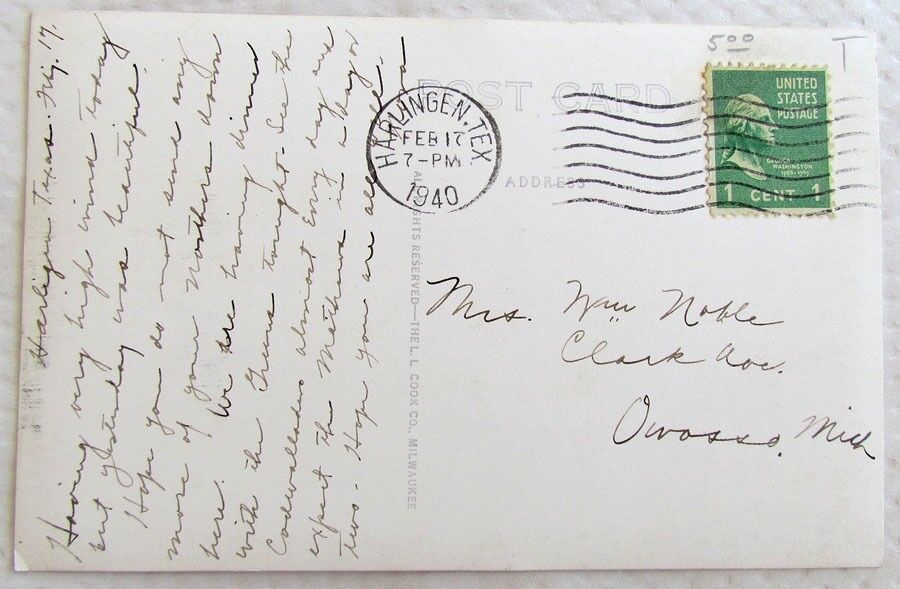 5 00
T
POST CARD
UNITED
STATES
POSTAGE
GEORGE
WASHINGTON
1 CENT 1
HARLINGEN, TEX
FEB 17
7-PM
1940
ADDRESS
ALL RIGHTS RESERVED—THE L. L. COOK CO., MILWAUKEE
Harligen Texas. 17.
Having very high wind today
but yesterday was beautiful.
Hope you do not send any
more of your Northers down
here. We are having dinner
with the tonight - See the
Cadwalladers almost Every day and
expect the Mathews in a day or
two. Hope you are all
Mrs. Wm Noble
Clark Ave.
Owosso, Mich